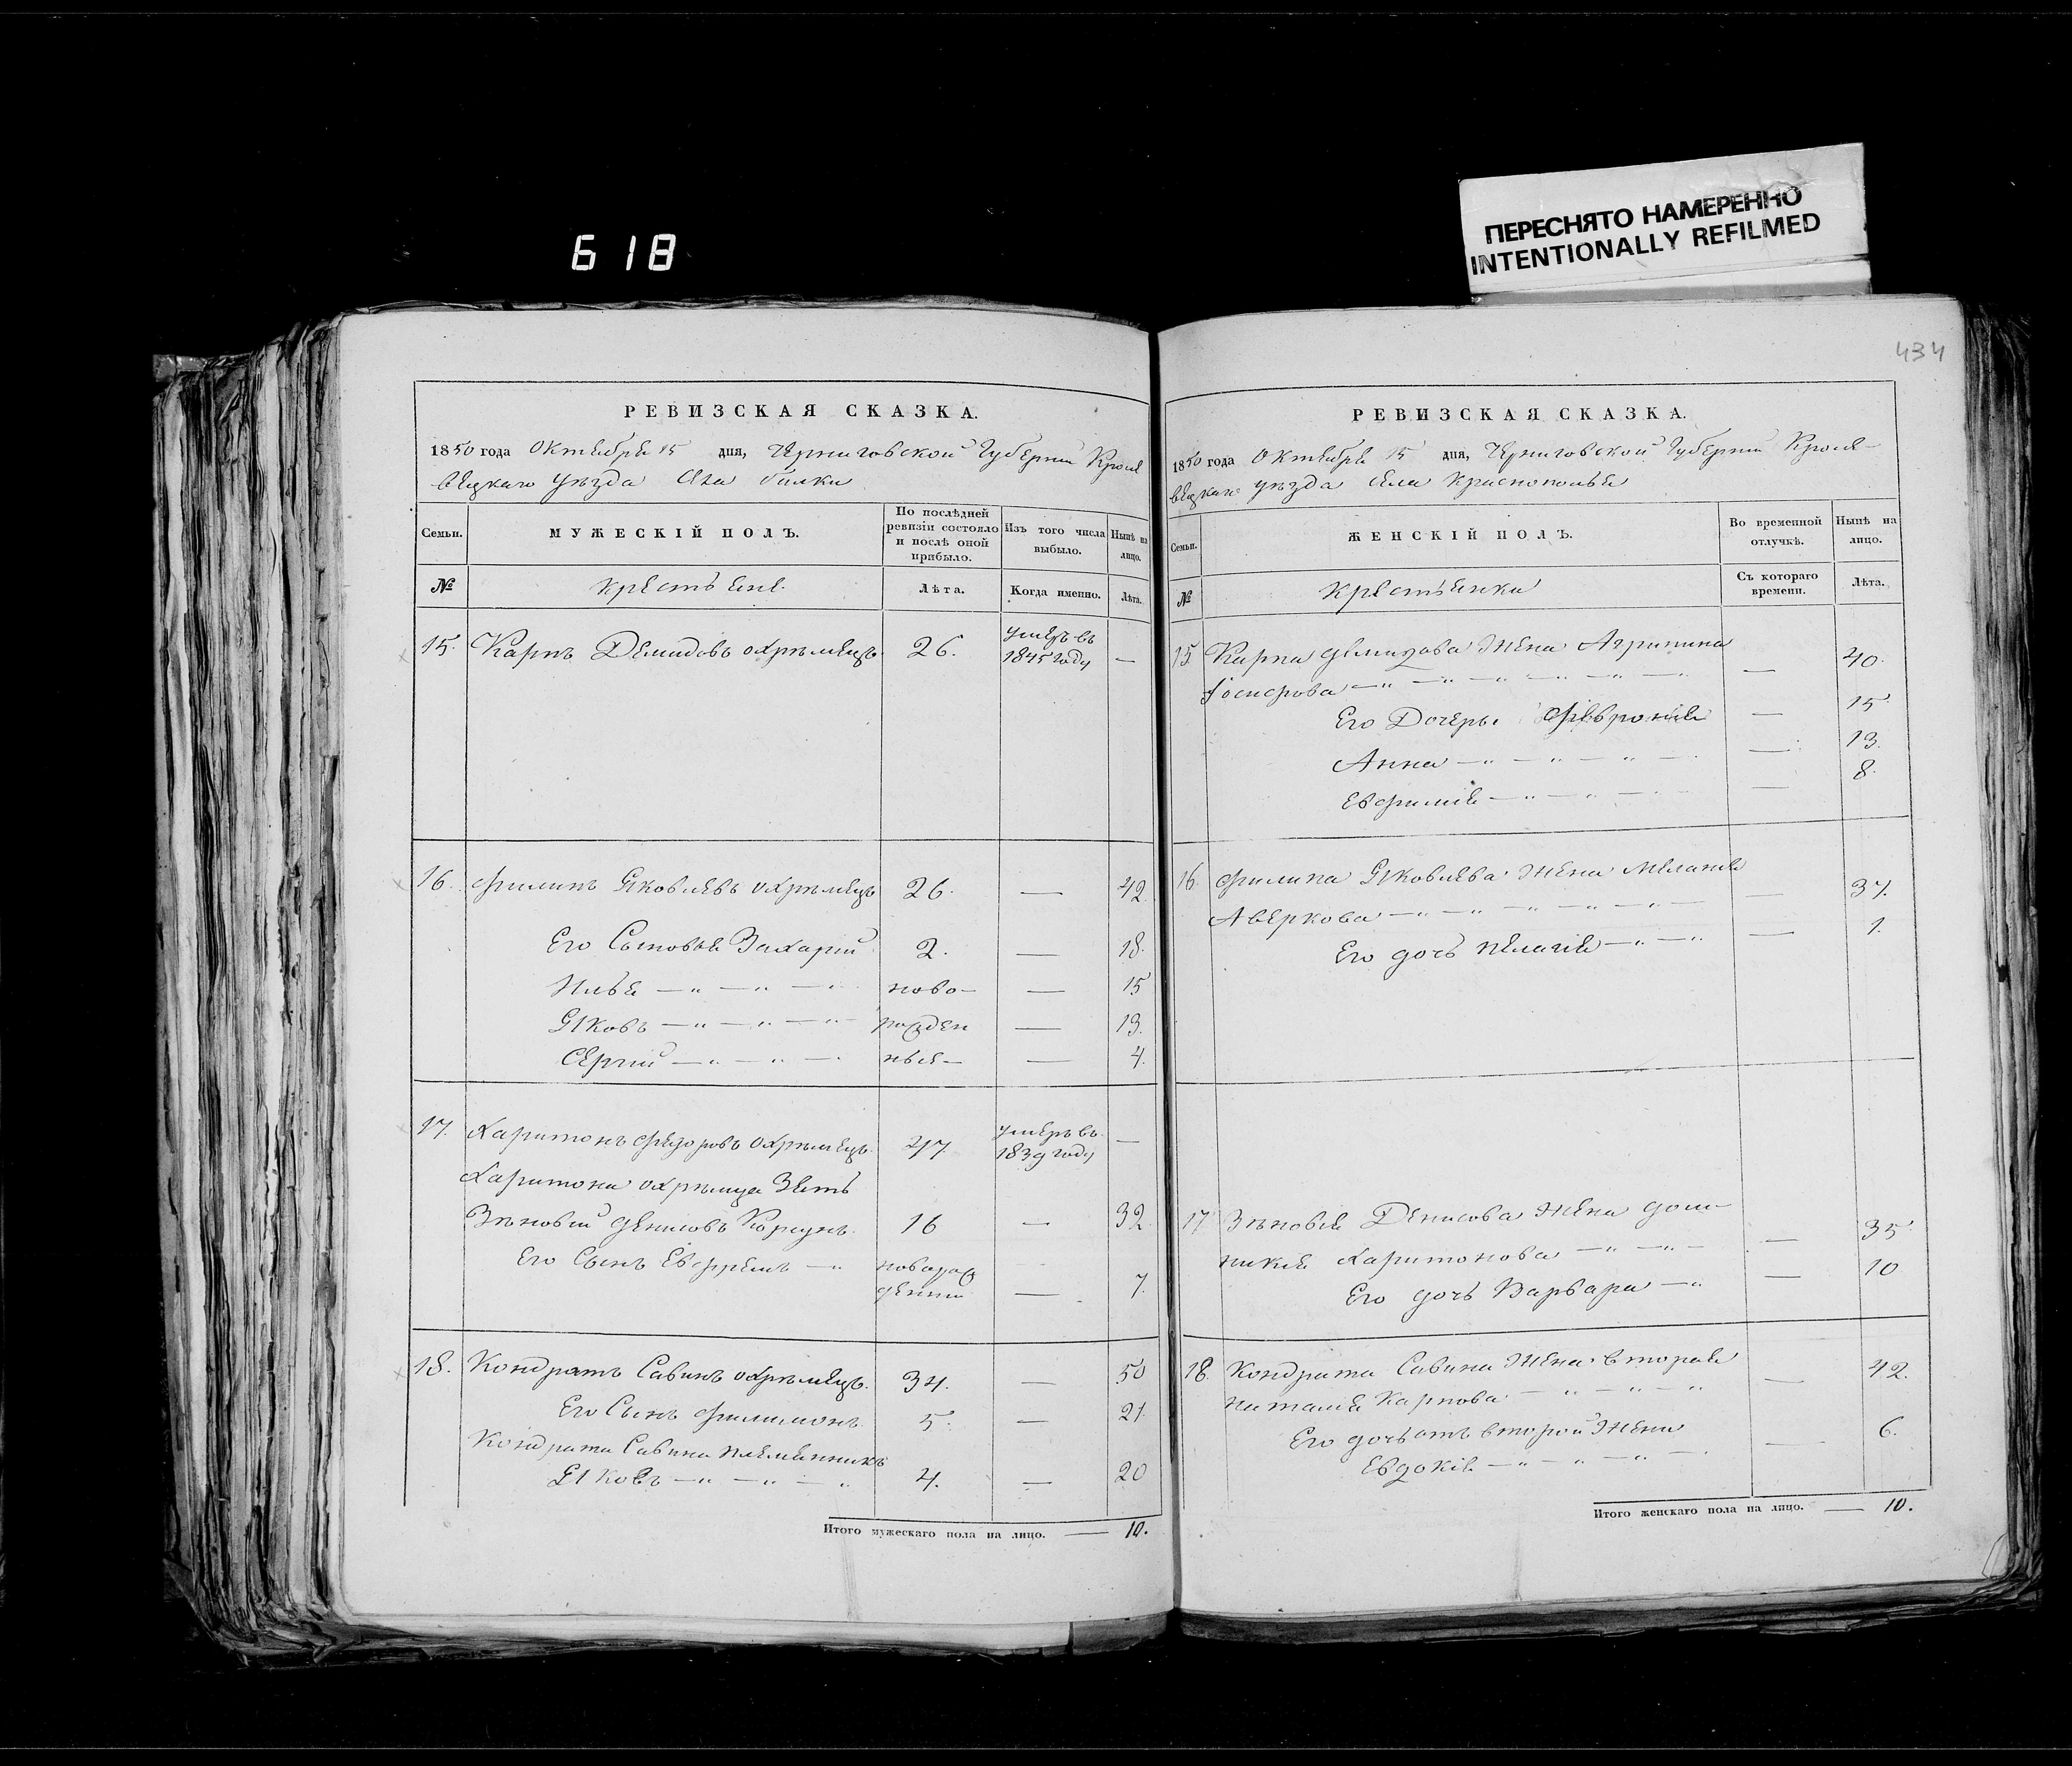 618
ПЕРЕСНЯТО НАМЕРЕННО
INTENTIONALLY REFILMED
434
РЕВИЗСКАЯ СКАЗКА.
1850 года Октября 15 дня, Черниговской Губернии Кроле
вецкаго уѣзда Села билки
Семьи. МУЖЕСКІЙ ПОЛЪ. По послѣдней ревизіи состояло и послѣ оной прибыло. Изъ того числа выбыло. Нынѣ на лицо.
№ крестьяне. Лѣта. Когда именно. Лѣта.
15. Карпъ Демидовъ охрѣмецъ 26. умеръ въ 1845 году —
16. Филипъ Яковлевъ охрѣмецъ 26. — 42.
Его Сыновья Захарій 2. — 18.
Илья — „ — „ — „ ново- — 15
Яковъ — „ — „ — „ рожден — 13.
Сергій — „ — „ — ныя — — 4.
17. Харитонъ Федоровъ охрѣмецъ. 47 умеръ въ 1839 году —
Харитона охрѣмца Зять
Зѣновій Денисовъ Корсунъ. 16 — 32.
Его Сынъ Евфремъ — „ новорож
денній — 7.
18. Кондратъ Савинъ охрѣмецъ. 34. — 50
Его Сынъ Филимонъ 5. — 21.
Кондрата Савина племянникъ
Яковъ — „ — „ — „ 4. — 20
Итого мужескаго пола на лицо. — 10.
РЕВИЗСКАЯ СКАЗКА.
1850 года Октября 15 дня, Черниговской Губерніи Кроле-
вецкаго уѣзда Села Краснополья
Семьи. ЖЕНСКІЙ ПОЛЪ. Во временной отлучкѣ. Нынѣ на лицо.
№ крестьянки Съ котораго времени. Лѣта.
15 Карпа Демидова Жена Агрипина
Іосифова — „ — „ — „ — „ — „ — „ — 40.
Его Дочеры Февронія — 15.
Анна — „ — „ — „ — — 13.
Евфимія — „ — „ — — 8.
16. Филипа Яковлева Жена Меланія
Аверкова — „ — „ — „ — „ — „ — — 37.
Его дочь Пелагія — „ — „ — 1.
17 Зѣновія Денисова Жена Дом-
никія Харитонова — „ — „ — — 35.
Его дочь Варвара — „ — 10
18. Кондрата Савина Жена вторая
Наталія Карпова — „ — „ — „ — 42.
Его дочь отъ второй Жены
Евдокія — „ — „ — „ — — 6.
Итого женскаго пола на лицо. — 10.